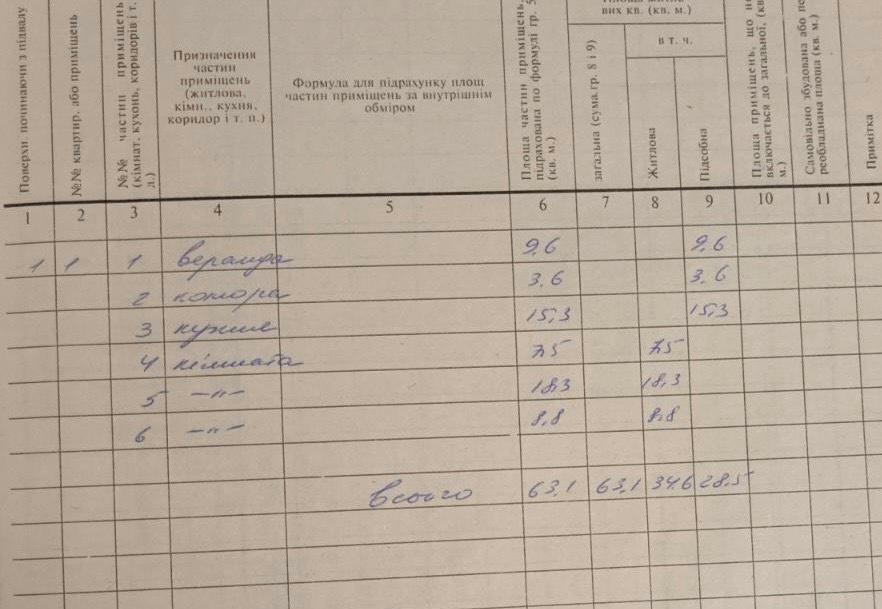 Поверхи, починаючи з підвалу
№№ квартир, або приміщень
№№ частин приміщень (кімнат, кухонь, коридорів і т.
л.)
Призначення
частин
приміщень
(житлова,
кімн., кухня,
коридор і т. п.)
Формула для підрахунку площ
частин приміщень за внутрішнім
обміром
Площа частин приміщень,
підрахована по формулі гр. 5
(кв. м.)
вих кв. (кв. м.)
загальна (сума гр. 8 і 9)
в т. ч.
Житлова
Підсобна
Площа приміщень, що не
включається до загальної, (кв
м.)
Самовільно збудована або пе
реобладнана площа (кв. м.)
Примітка
1 2 3 4 5 6 7 8 9 10 11 12
1 1 1 веранда 9,6 9,6
2 комора 3,6 3,6
3 кухня 15,3 15,3
4 кімната 7,5 7,5
5 —"— 18,3 18,3
6 —"— 8,8 8,8
Всього 63,1 63,1 34,6 28,5